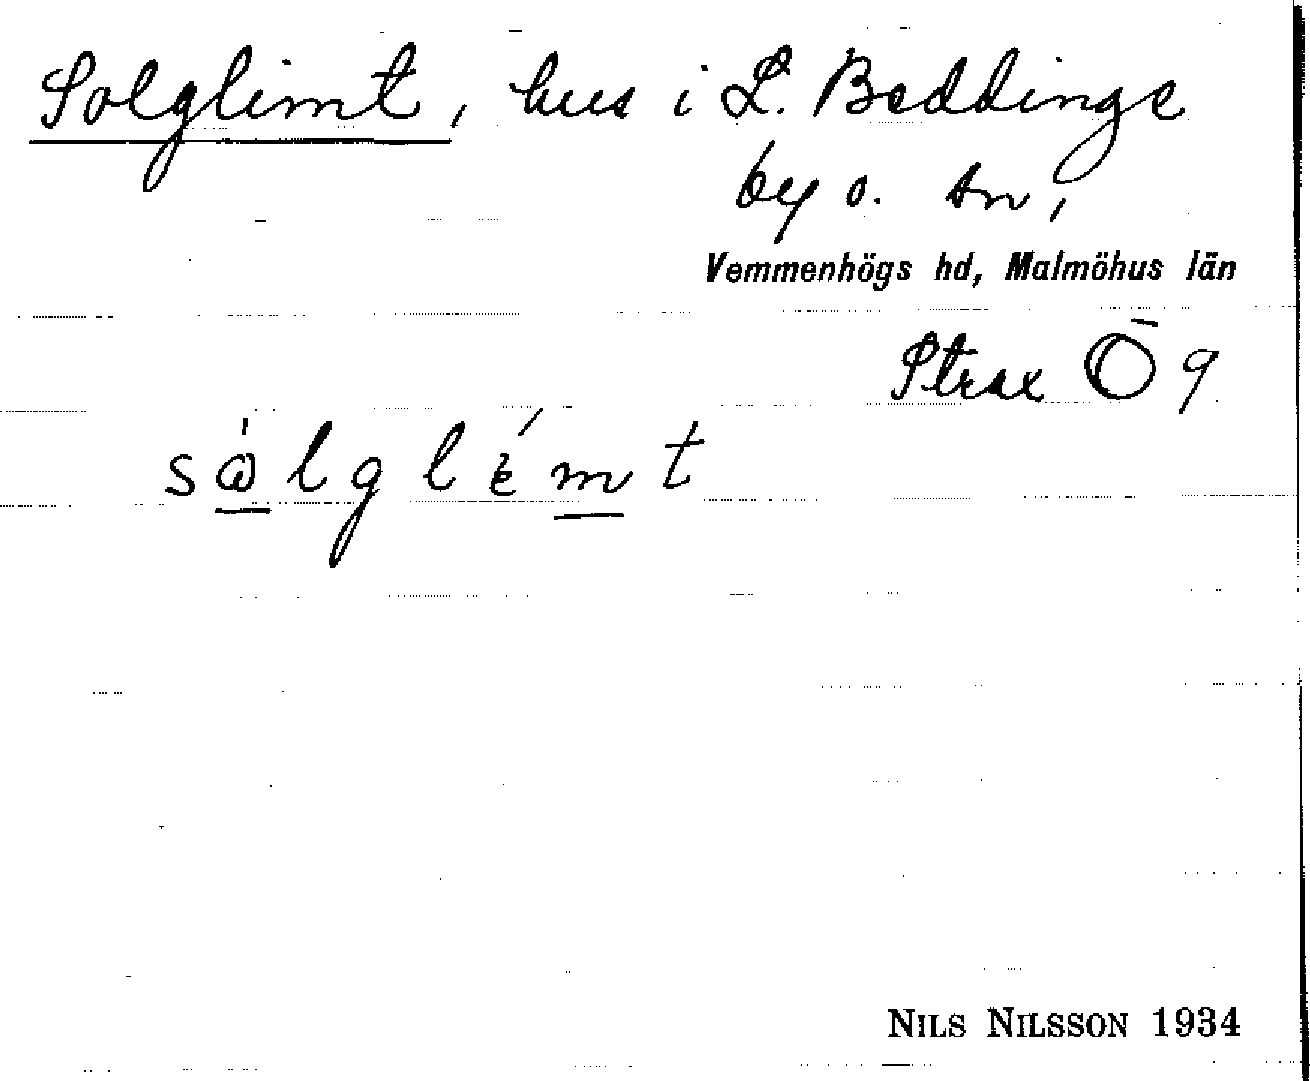 Solglimt, hus i L. Beddinge
by o. sn,
Vemmenhögs hd, Malmöhus län
Strax Ö 9
NILS NILSSON 1934